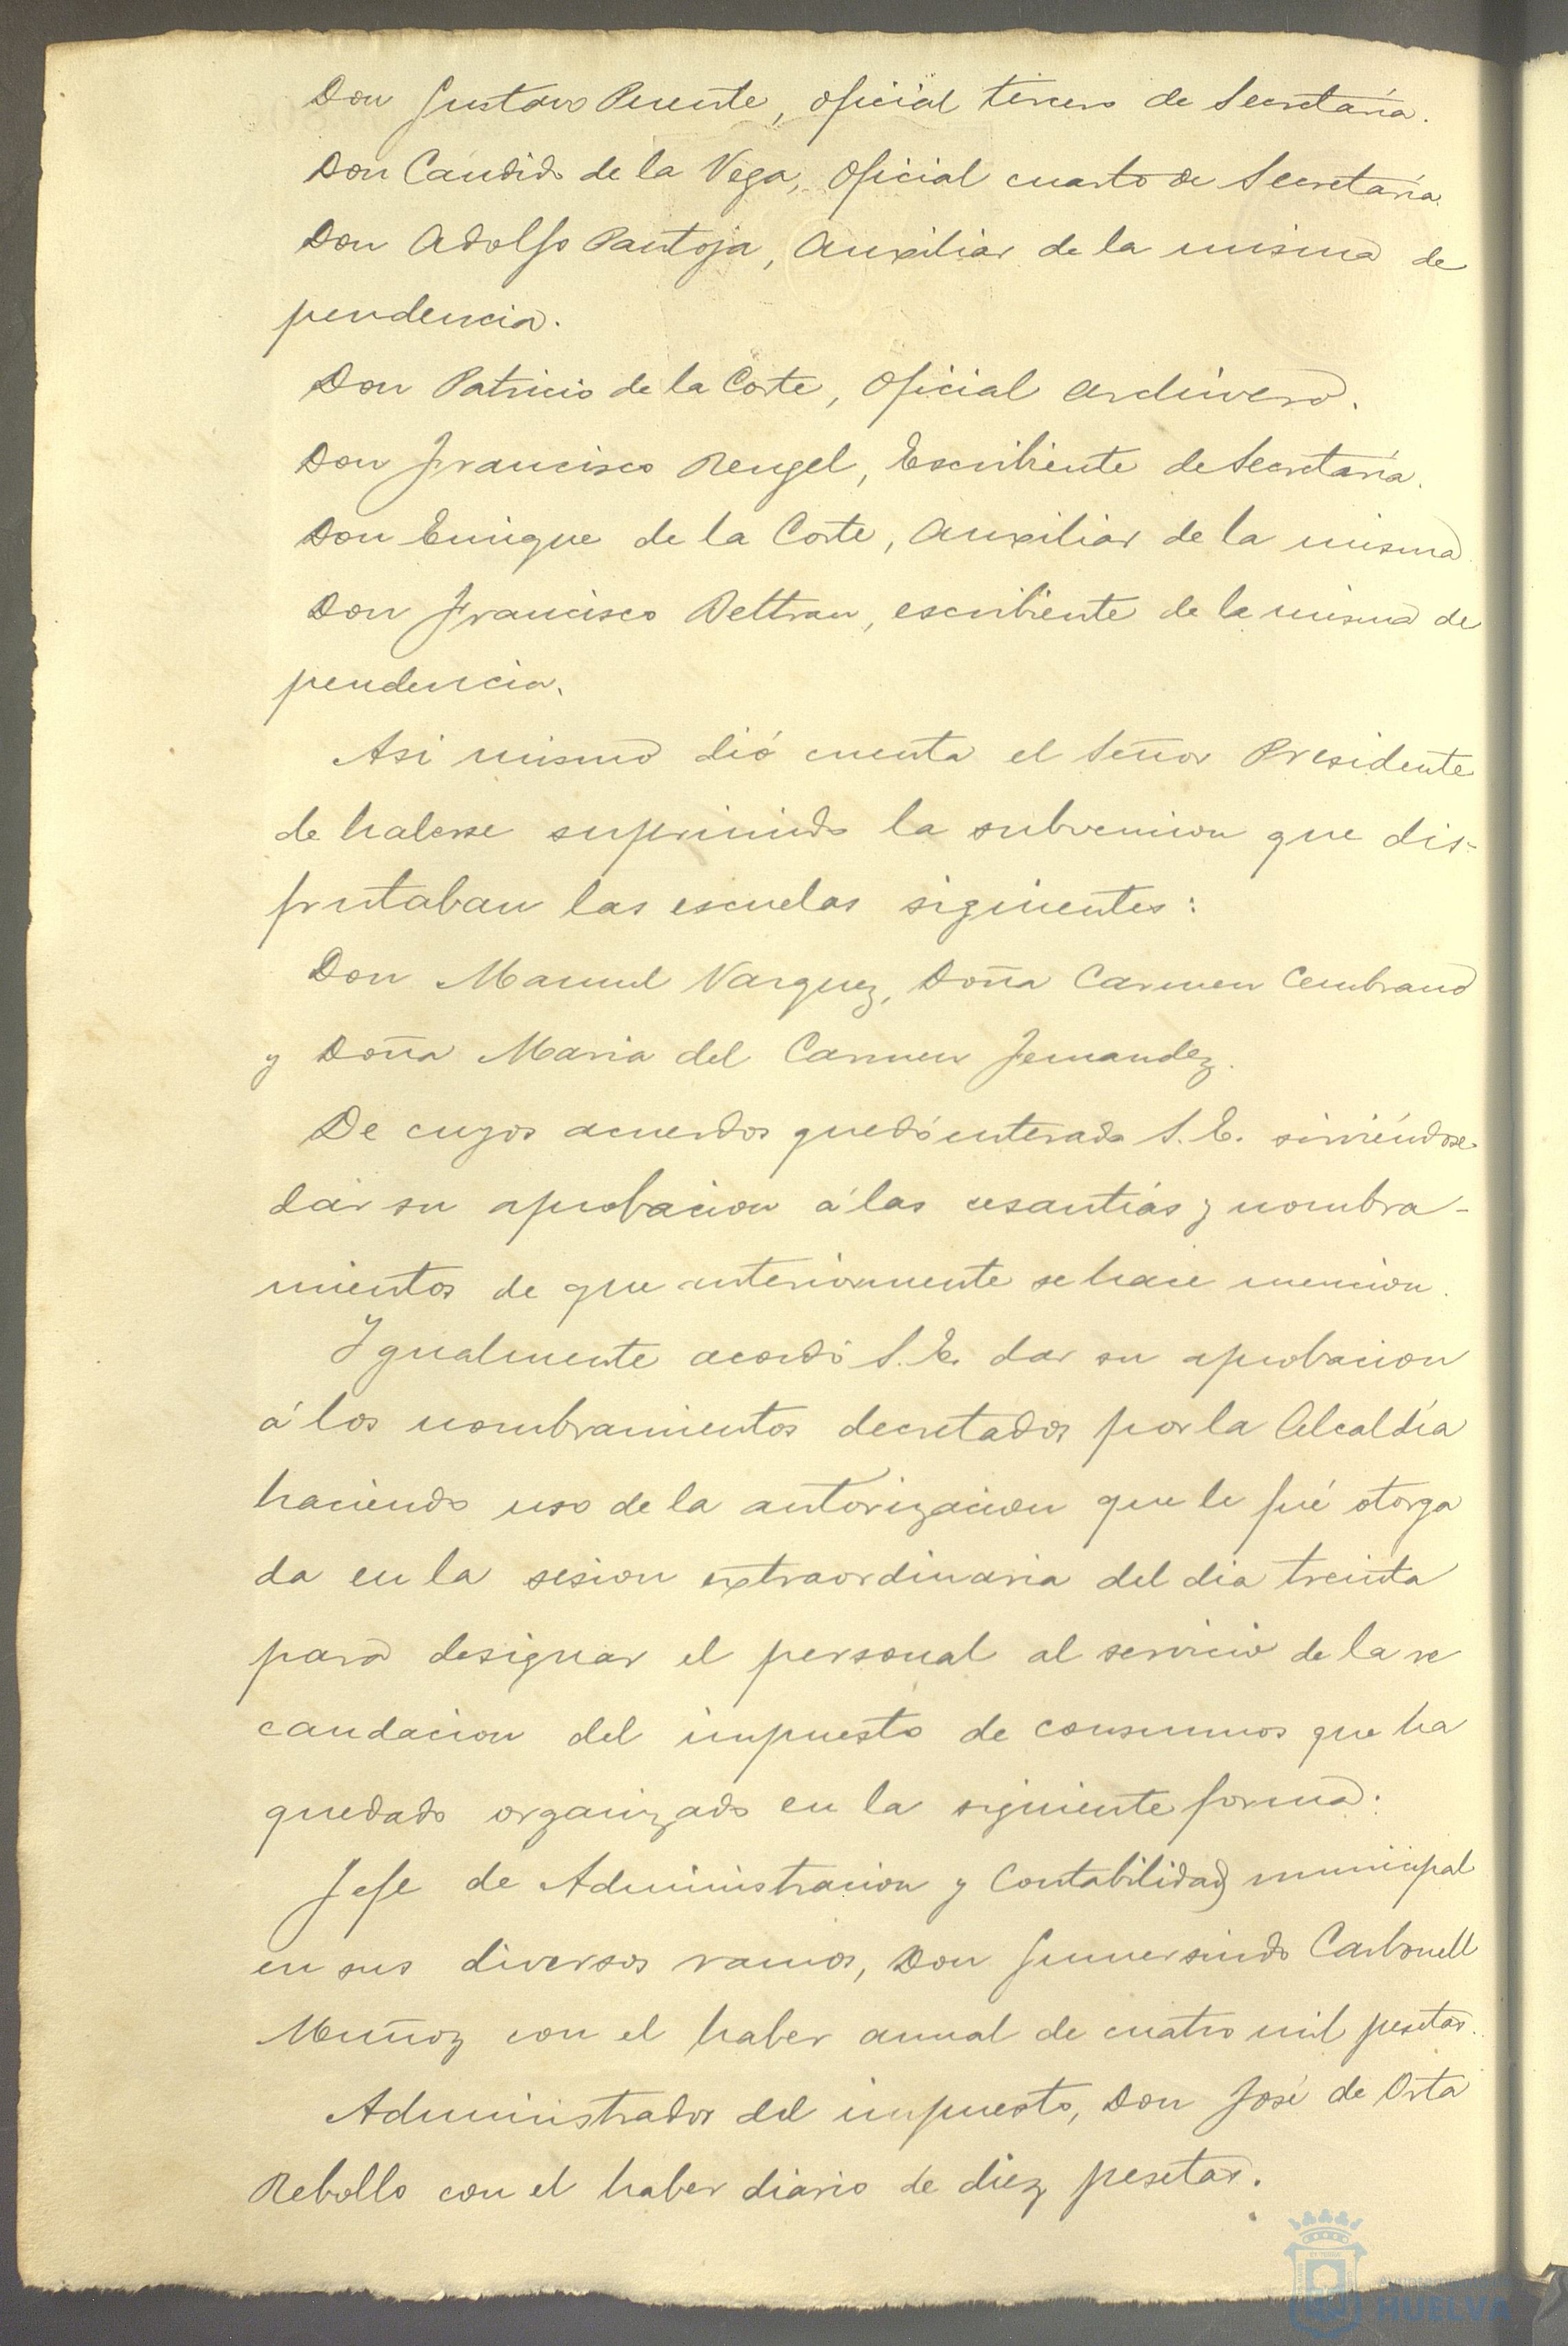 Don Gustavo Puente, oficial tercero de Secretaría.
Don Candido de la Vega, Oficial cuarto de Secretaría.
Don Adolfo Pantoja, Auxiliar de la misma de
pendencia.
Don Patricio de la Corte, Oficial Archivero.
Don Francisco Rengel, Escribiente de Secretaría.
Don Enrique de la Corte, Auxiliar de la misma
Don Francisco Beltran, escribiente de la misma de
pendencia.
Asi mismo dió cuenta el Señor Presidente
de haberse suprimido la subvencion que dis-
frutaban las escuelas siguientes:
Don Manuel Vazquez, Doña Carmen Cembrano
y Doña Maria del Carmen Fernandez.
De cuyos acuerdos quedó enterada S. E. sirviéndose
dar su aprobacion á las cesantías y nombra-
mientos de que anteriormente se hace mencion.
Igualmente acordó S. E. dar su aprobacion
á los nombramientos decretados por la Alcaldía
haciendo uso de la autorizacion que le fué otorga
da en la sesion extraordinaria del dia treinta
para designar el personal al servicio de la re
caudacion del impuesto de consumos que ha
quedado organizado en la siguiente forma:
Jefe de Administracion y Contabilidad municipal
en sus diversos ramos, Don Gumersindo Carbonell
Muñoz con el haber anual de cuatro mil pesetas.
Administrador del impuesto, Don José de Orta
Rebollo con el haber diario de diez pesetas.
HUELVA